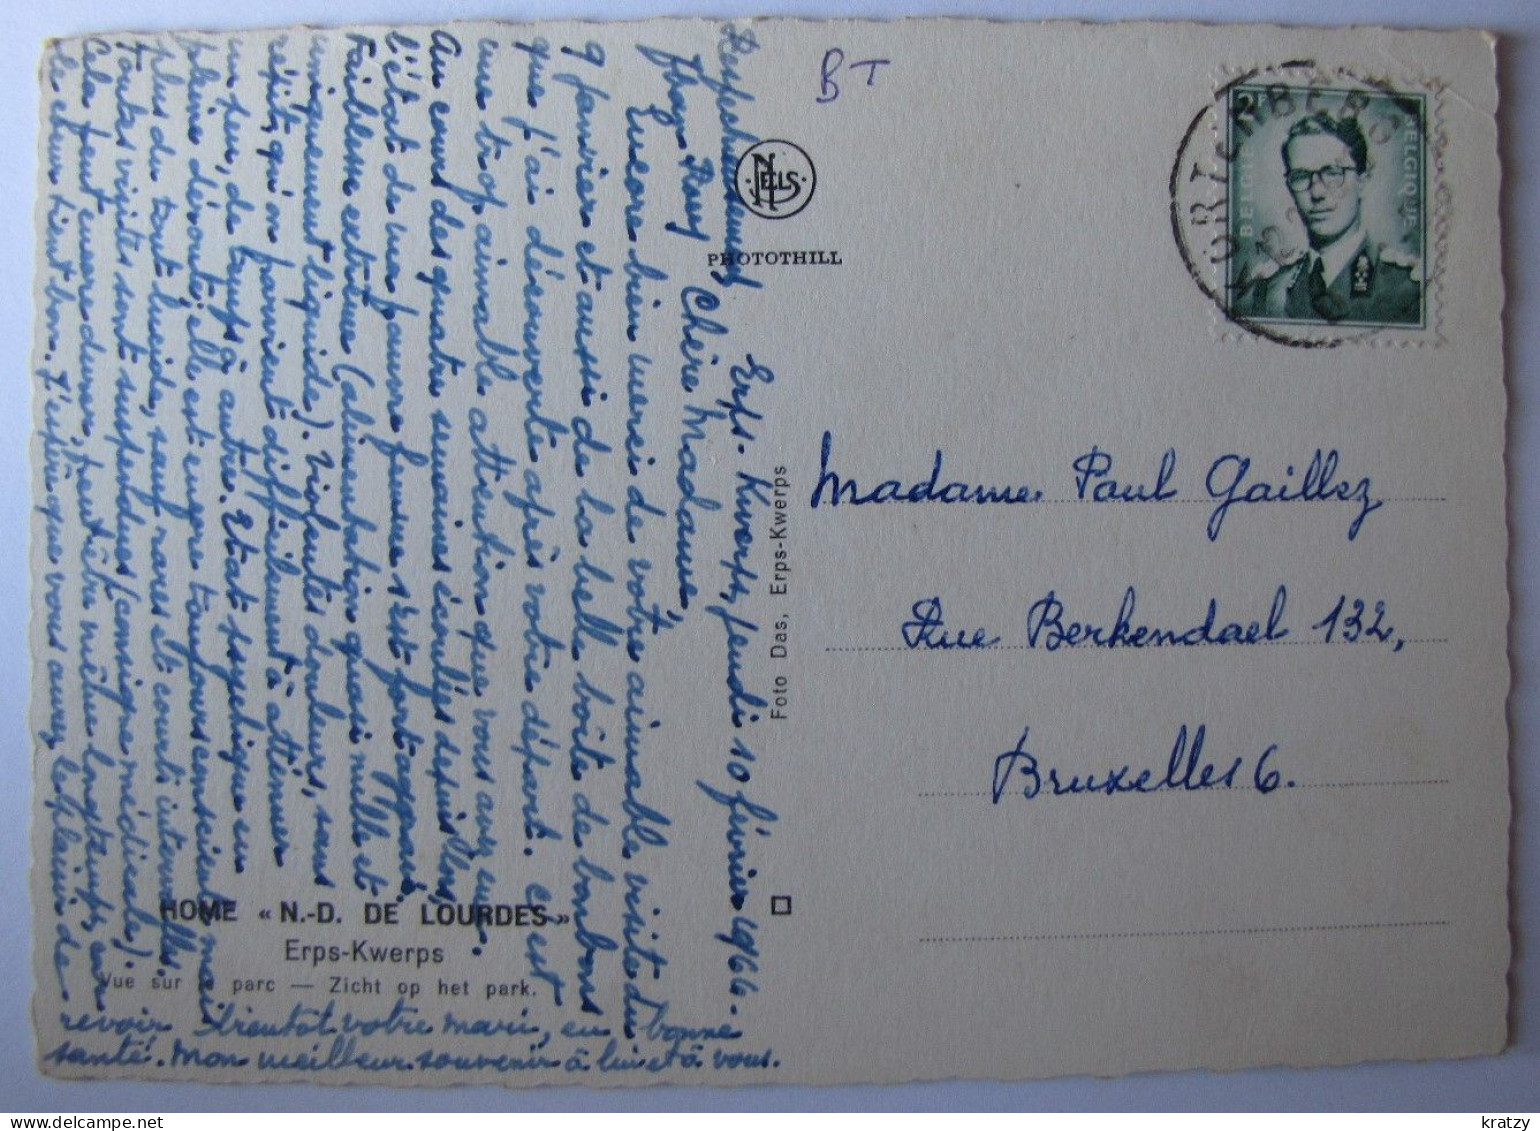 BT
2F
BELGIE BELGIQUE
KORTENBERG
NELS
PHOTOTHILL
Foto Das, Erps-Kwerps
Madame Paul Gaillez
Rue Berkendael 132,
Bruxelles 6.
HOME « N.-D. DE LOURDES »
Erps-Kwerps
Vue sur le parc — Zicht op het park.
Erps-Kwerps, jeudi 10 février 1966.
Chère Madame,
Encore bien merci de votre aimable visite du
9 janvier et aussi de la belle boîte de bonbons
que j'ai découverte après votre départ. C'est
une trop aimable attention que vous avez eue.
Au cours des quatre semaines écoulées depuis lors,
l'état de ma pauvre femme s'est fort aggravé.
Faiblesse extrême (alimentation quasi nulle et
uniquement liquide). Violentes douleurs, sans
répit, qu'on parvient difficilement à atténuer
un peu, de temps à autre. Etat psychique en
pleine déroute, elle est encore toujours consciente mais
plus du tout lucide, sauf rares et courts intervalles.
Toutes visites sont suspendues (consigne médicale).
Cela peut encore durer, peut-être même longtemps, car
le cœur tient bon. J'espère que vous aurez le plaisir de
revoir bientôt votre mari, en bonne
santé. Mon meilleur souvenir à lui et à vous.
Respectueusement